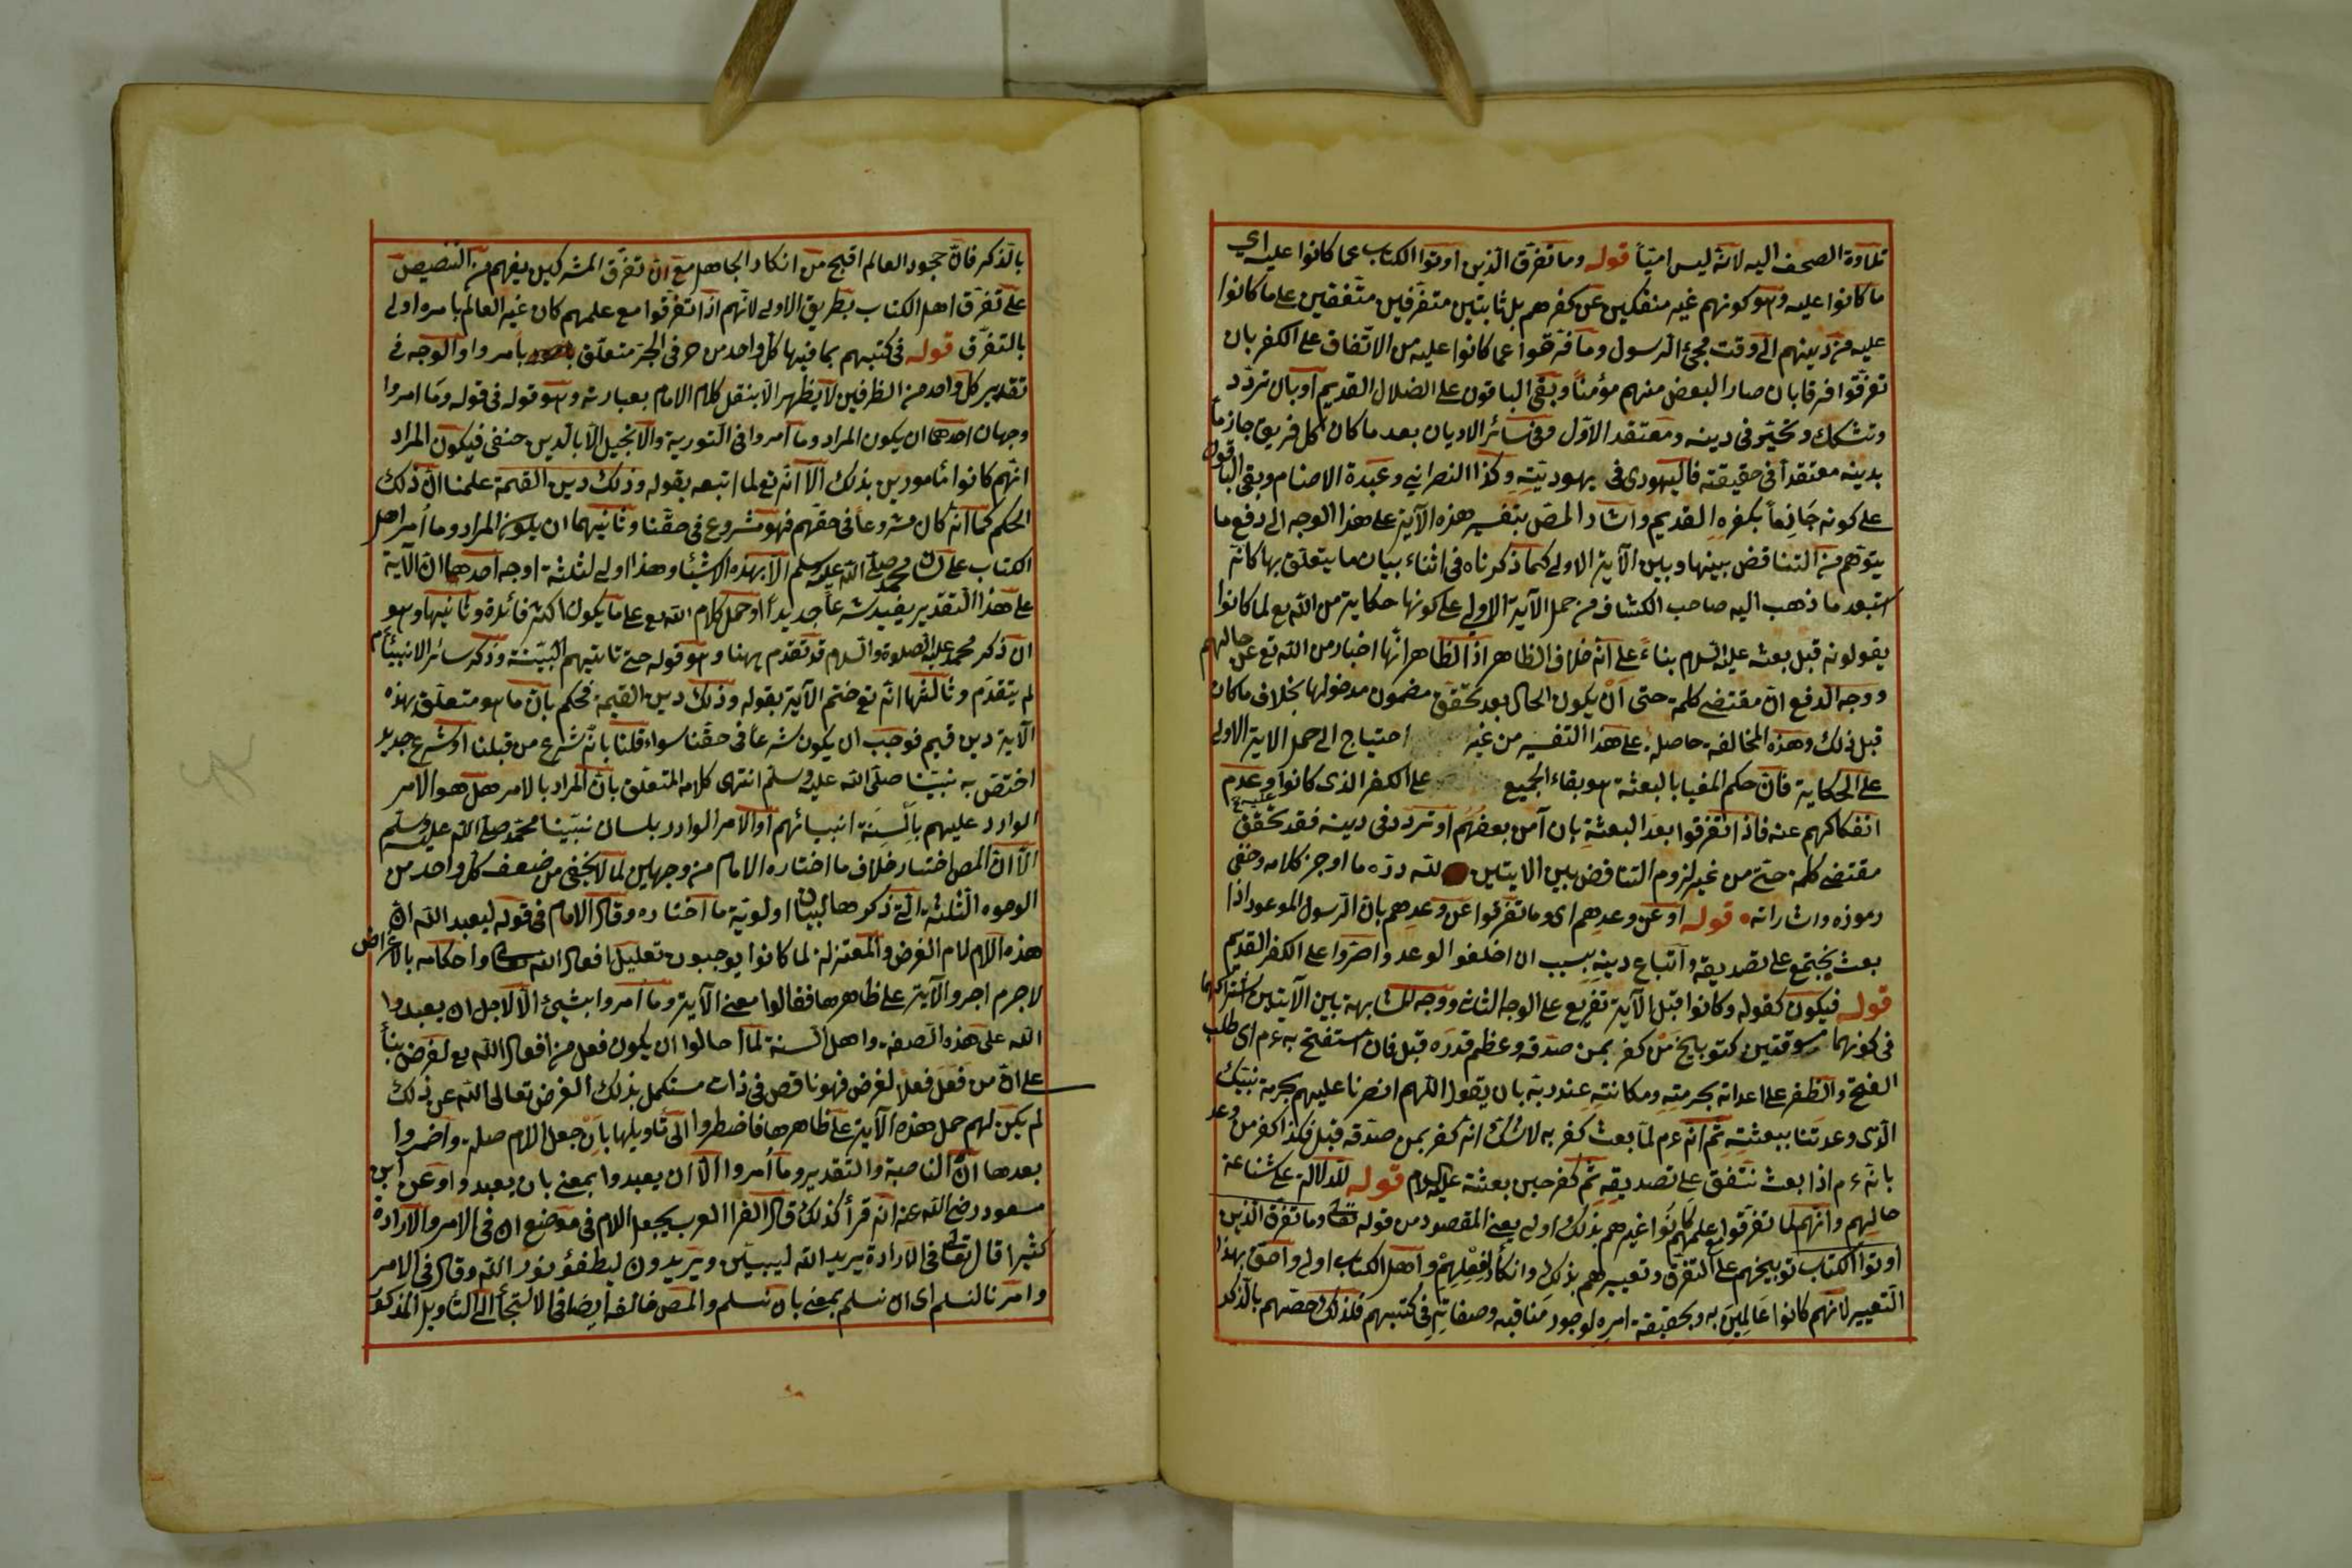 تلاوة الصحف اليه لانه ليس اميّاً قوله وما تفرق الذين اوتوا الكتاب عما كانوا عليه اي
ما كانوا عليه وهو كونهم غير منفكين عن كفرهم بل ثابتين متفرقين متفقين على ما كانوا
عليه من دينهم الى وقت مجئ الرسول وما فرقوا عما كانوا عليه من الاتفاق على الكفر بان
تفرقوا فرقا بان صار البعض منهم مؤمناً وبقى الباقون على الضلال القديم او بان تردد
وتشكك وتحيّر فى دينه ومعتقد الاوّل وفى سائر الاديان بعد ما كان كل فريق جازماً
بدينه معتقداً فى حقيقته فاليهودى فى يهوديته وكذا النصرانى وعبدة الاصنام وبقى الباقون
على كونه جازماً بكفره القديم واشار المص بتفسير هذه الآية على هذا الوجه الى دفع ما
يتوهم من التناقض بينها وبين الآية الاولى كما ذكرناه فى اثناء بيان ما يتعلق بها كانّه
استبعد ما ذهب اليه صاحب الكشاف من حمل الآية الاولى على كونها حكاية من الله تع لما كانوا
يقولونه قبل بعثه عليه السلام بناءً على انه خلاف الظاهر اذ الظاهر انها اخبار من الله تع عن حالهم
ووجه الدفع انّ مقتضى كلمة حتى اَنْ يكون الحال بعد تحقّق مضمون مدخولها بخلاف ما كان
قبل ذلك وهذه المخالفة حاصلة على هذا التفسير من غير احتياج الى حمل الاية الاولى
على الحكاية فانّ حكم المغيا بالبعثة هو بقاء الجميع على الكفر الذى كانوا عليه وعدم
انفكاكهم عنه فاذا تفرقوا بعد البعثة بان آمن بعضهم او تردد فى دينه فقد تحقّق
مقتضى كلمة حتى من غير لزوم التناقض بين الايتين لله درّه ما اوجز كلامه وخفى
رموزه واشاراته قوله او عن وعدهم اى وما تفرقوا عن وعدهم بان الرسول الموعود اذا
بعث يجتمع على تصديقه واتباع دينه بسبب ان اخلفوا الوعد واصروا على الكفر القديم
قوله فيكون كقوله وكانوا من قبل الآية تفريع على الوجه الثانى ووجه المشابهة بين الآيتين اشتراكهما
فى كونهما مسوقتين كتوبيخ من كفر بمن صدّقه وعظم قدره قبل فان استفتح به ءم اى طلب
الفتح والظفر على اعدائه بحرمته ومكانته عند ربّه بان يقول اللهم انصرنا عليهم بحرمة نبيّك
الذى وعدتنا ببعثته ثم انه ءم لمّا بعث كفر به لاشك انه كفر بمن صدّقه قبل فكذا كفر من وعد
بانه ءم اذا بعث نتفق على تصديقه ثم كفر حين بعثته عليه السلام قوله للدلالة على شناعة
حالهم وانّهم لما تفرقوا مع علمهم كانوا غيرهم بذلك اولى يعنى المقصود من قوله تعالى وما تفرق الذين
اوتوا الكتاب توبيخهم على التفرق وتعييرهم بذلك وانكار لفعلهم واهل الكتاب اولى واحق بهذا
التعيير لانهم كانوا عالمين به وبحقيقة امره لوجود مناقبه وصفاته فى كتبهم فلذلك خصّهم بالذكر
بالذكر فانّ جحود العالم اقبح من انكار الجاهل مع ان تفرق المشركين يفهم من التنصيص
على تفرق اهل الكتاب بطريق الاولى لانهم اذا تفرقوا مع علمهم كان غير العالم بامره اولى
بالتفرق قوله فى كتبهم بما فيها كل واحد من حرفى الجر متعلق بامروا والوجه فى
تقدير كل واحد من الظرفين لا يظهر الا بنقل كلام الامام بعبارته وهو قوله فى قوله وما امروا
وجهان احدهما ان يكون المراد وما امروا فى التورية والانجيل الا بالدين حنفى فيكون المراد
انهم كانوا مأمورين بذلك الا انه تع لما اتبعه بقوله وذلك دين القيمة علمنا ان ذلك
الحكم كما انه كان مشروعاً فى حقهم فهو مشروع فى حقنا وثانيهما ان يكون المراد وما اُمر اهل
الكتاب على لسان محمد صلى الله عليه وسلم الا بهذه الاشياء وهذا اولى لثلثة اوجه احدهما ان الآية
على هذا التقدير يفيد شرعاً جديداً وحمل كلام الله تع على ما يكون اكثر فائدة وثانيها وهو
ان ذكر محمد عليه الصلوة والسلام قد تقدم ههنا وهو قوله حتى تاتيهم البيّنة وذكر سائر الانبيأ ءم
لم يتقدم وثالثها انه تع ختم الآية بقوله وذلك دين القيمة فحكم بان ما هو متعلق بهذه
الآية دين قيم فوجب ان يكون شرعاً فى حقنا سواء قلنا بانّه شرع من قبلنا او شرع جديد
اختص به نبيّنا صلى الله عليه وسلم انتهى كلامه المتعلق بان المراد بالامر هل هو الامر
الوارد عليهم بالسِنَة انبيائهم او الامر الوارد بلسان نبيّنا محمّد صلى الله عليه وسلم
الا ان المص اختار خلاف ما اختاره الامام من وجهين لما لا يخفى من ضعف كل واحد من
الوجوه الثلثة التى ذكرها لبيان اولوية ما اختاره وقال الامام فى قوله ليعبد الله ان
هذه اللام لام الغرض والمعتزلة لما كانوا يوجبون تعليل افعال الله تعالى واحكامه بالاغراض
لاجرم اجروا الآية على ظاهرها فقالوا معنى الآية وما اُمروا بشئ الا لاجل ان يعبدوا
الله على هذه الصفة واهل السنة لما احالوا ان يكون فعل من افعال الله تع لغرض بنأ
على انّ من فعَل فعلاً لغرض فهو ناقص فى ذات مستكمل بذلك الغرض تعالى الله عن ذلك
لم يكن لهم حمل هذه الآية على ظاهرها فاضطروا الى تأويلها بان جعل اللام صلة واضمروا
بعدها ان الناصبة والتقدير وما اُمروا الا ان يعبدوا بمعنى بان يعبدوا وعن ابن
مسعود رضى الله عنه انه قرأ كذلك قال الفرا العرب يجعل اللام فى موضع ان فى الامر والارادة
كثيرا قال تعالى فى الارادة يريد الله ليبيّن ويريدون ليطفؤ نور الله وقال فى الامر
وامرنا لنسلم اى ان نسلم بمعنى بان نسلم والمص خالفه ايضا فى الالتجأ الى التأويل المذكور